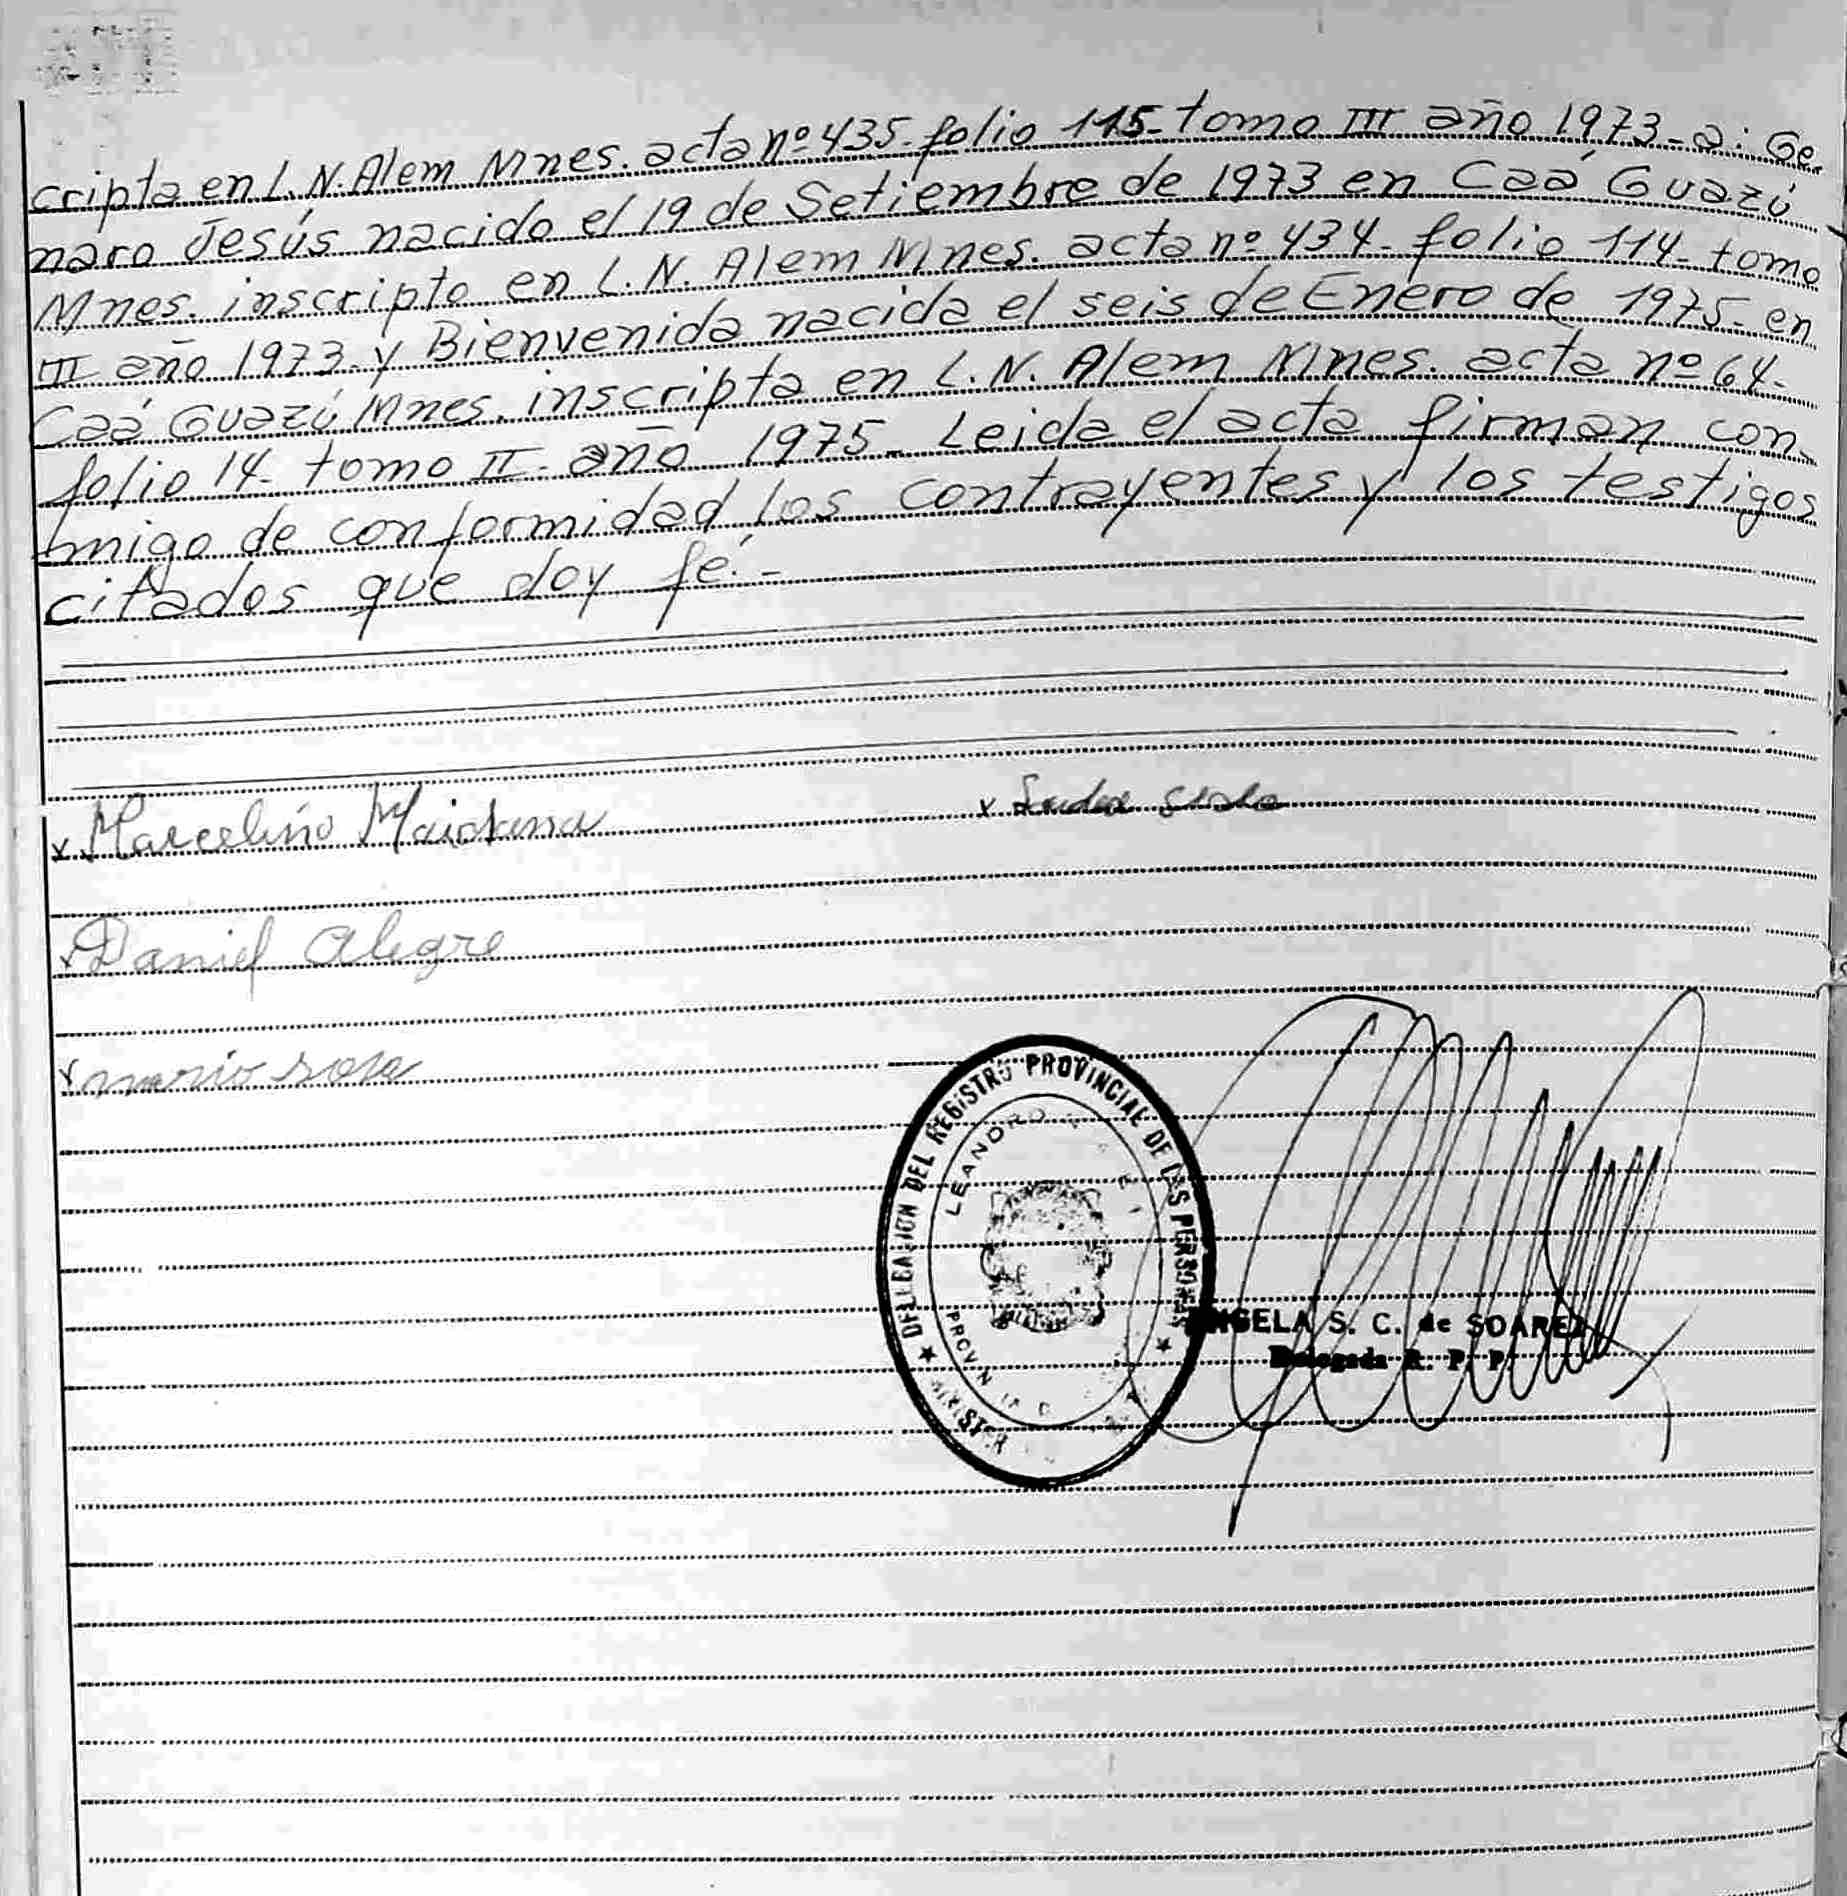 cripta en L. N. Alem Mnes. acta nº 435- folio 115- tomo III año 1973- a: Ge-
naro Jesús nacido el 19 de Setiembre de 1973 en Caá Guazú
Mnes. inscripto en L. N. Alem Mnes. acta nº 434- folio 114- tomo
III año 1973- y Bienvenida nacida el seis de Enero de 1975- en
Caá Guazú Mnes. inscripta en L. N. Alem Mnes. acta nº 64-
folio 14- tomo II- año 1975- Leida el acta firman con-
migo de conformidad los contrayentes y los testigos
citados que doy fé.-
x Marcelino Maidana
x
x Daniel Alegre
x mario rosa
DELEGACION DEL REGISTRO PROVINCIAL DE LAS PERSONAS
LEANDRO
ANGELA S. C. de SOAREZ
Delegada R. P. P.